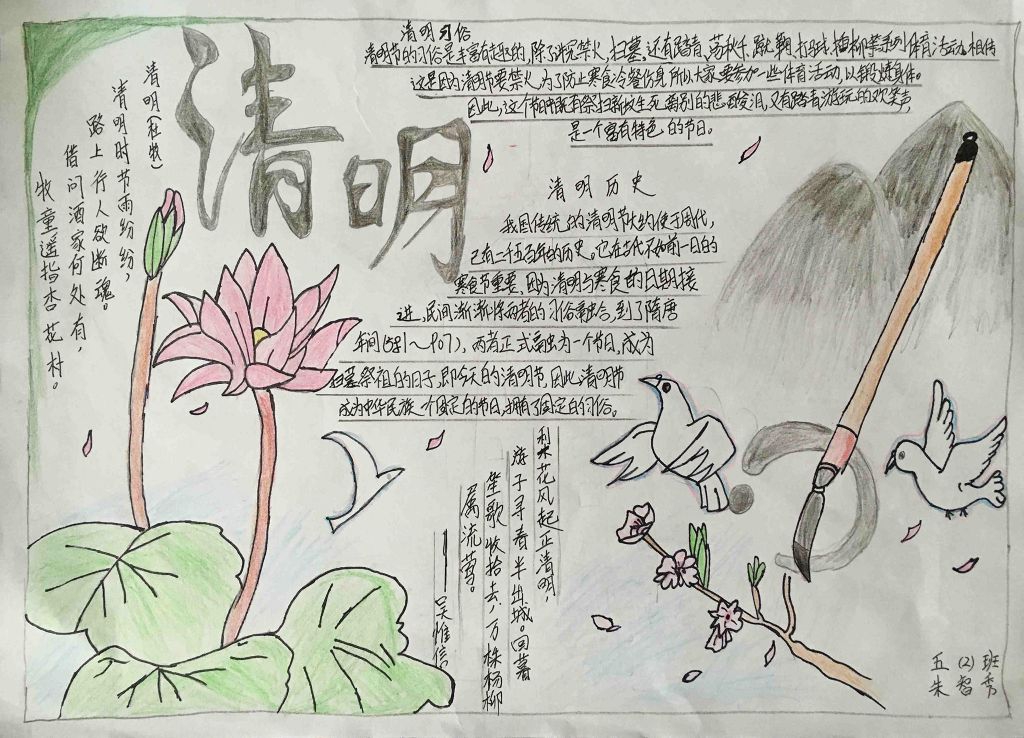 清明
清明(杜牧)
清明时节雨纷纷，
路上行人欲断魂。
借问酒家何处有，
牧童遥指杏花村。
清明习俗
清明节的习俗是丰富有趣的,除了讲究禁火、扫墓,还有踏青、荡秋千、蹴鞠、打马球、插柳等系列体育活动。相传
这是因为清明节要禁火,为了防止寒食冷餐伤身,所以大家要参加一些体育活动,以锻炼身体。
因此,这个节日中既有祭扫新坟生死离别的悲酸泪,又有踏青游玩的欢笑声,
是一个富有特色的节日。
清明历史
我国传统的清明节大约始于周代,
已有二千五百年的历史。它在古代不如前一日的
寒食节重要,因为清明与寒食的日期接
进,民间渐渐将两者的习俗融合,到了隋唐
年间(581～907),两者正式融为一个节日,成为
扫墓祭祖的日子,即今天的清明节,因此清明节
成为中华民族一个固定的节日,拥有了固定的习俗。
梨花风起正清明,
游子寻春半出城。回暮
笙歌收拾去,万株杨柳
属流莺。
——吴惟信
五(2)班
朱智秀